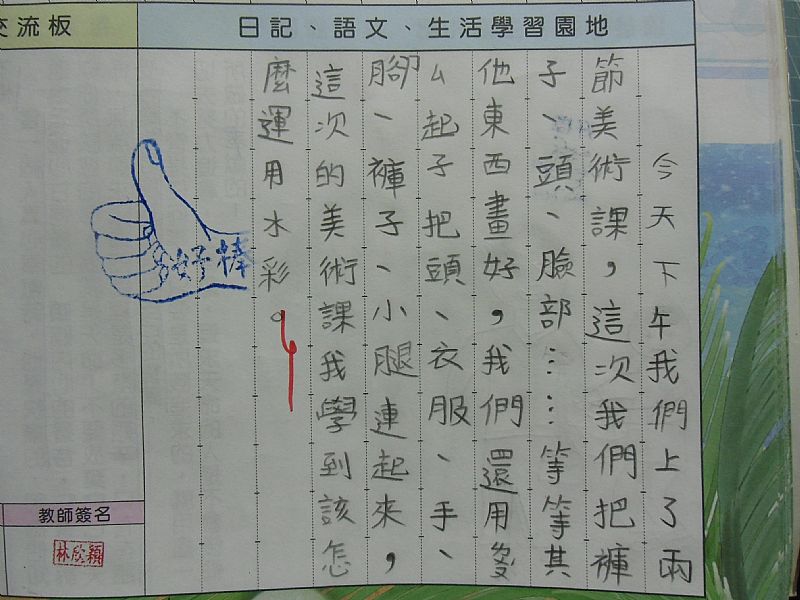 交流板
日記、語文、生活學習園地
今天下午我們上了兩
節美術課，這次我們把褲
子、頭、臉部……等等其
他東西畫好，我們還用
ㄙ起子把頭、衣服、手、
腳、褲子、小腿連起來，
這次的美術課我學到該怎
麼運用水彩。
好棒
教師簽名
林欣穎